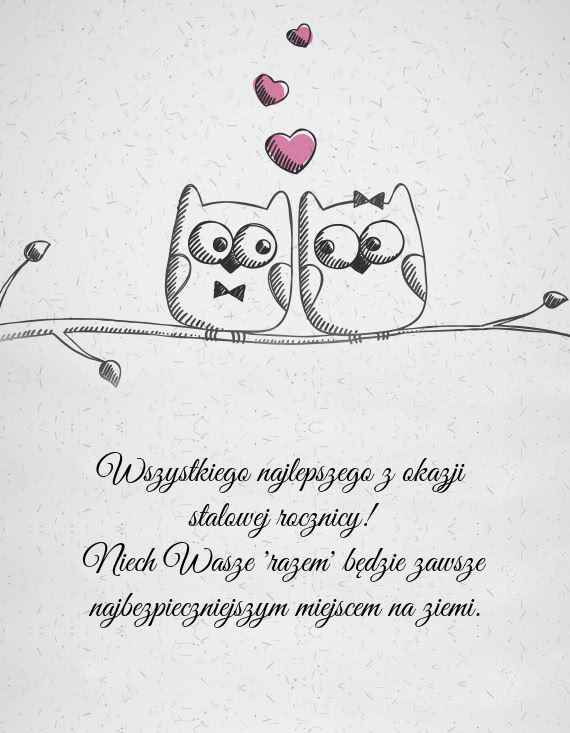 Wszystkiego najlepszego z okazji
stalowej rocznicy!
Niech Wasze 'razem' będzie zawsze
najbezpieczniejszym miejscem na ziemi.